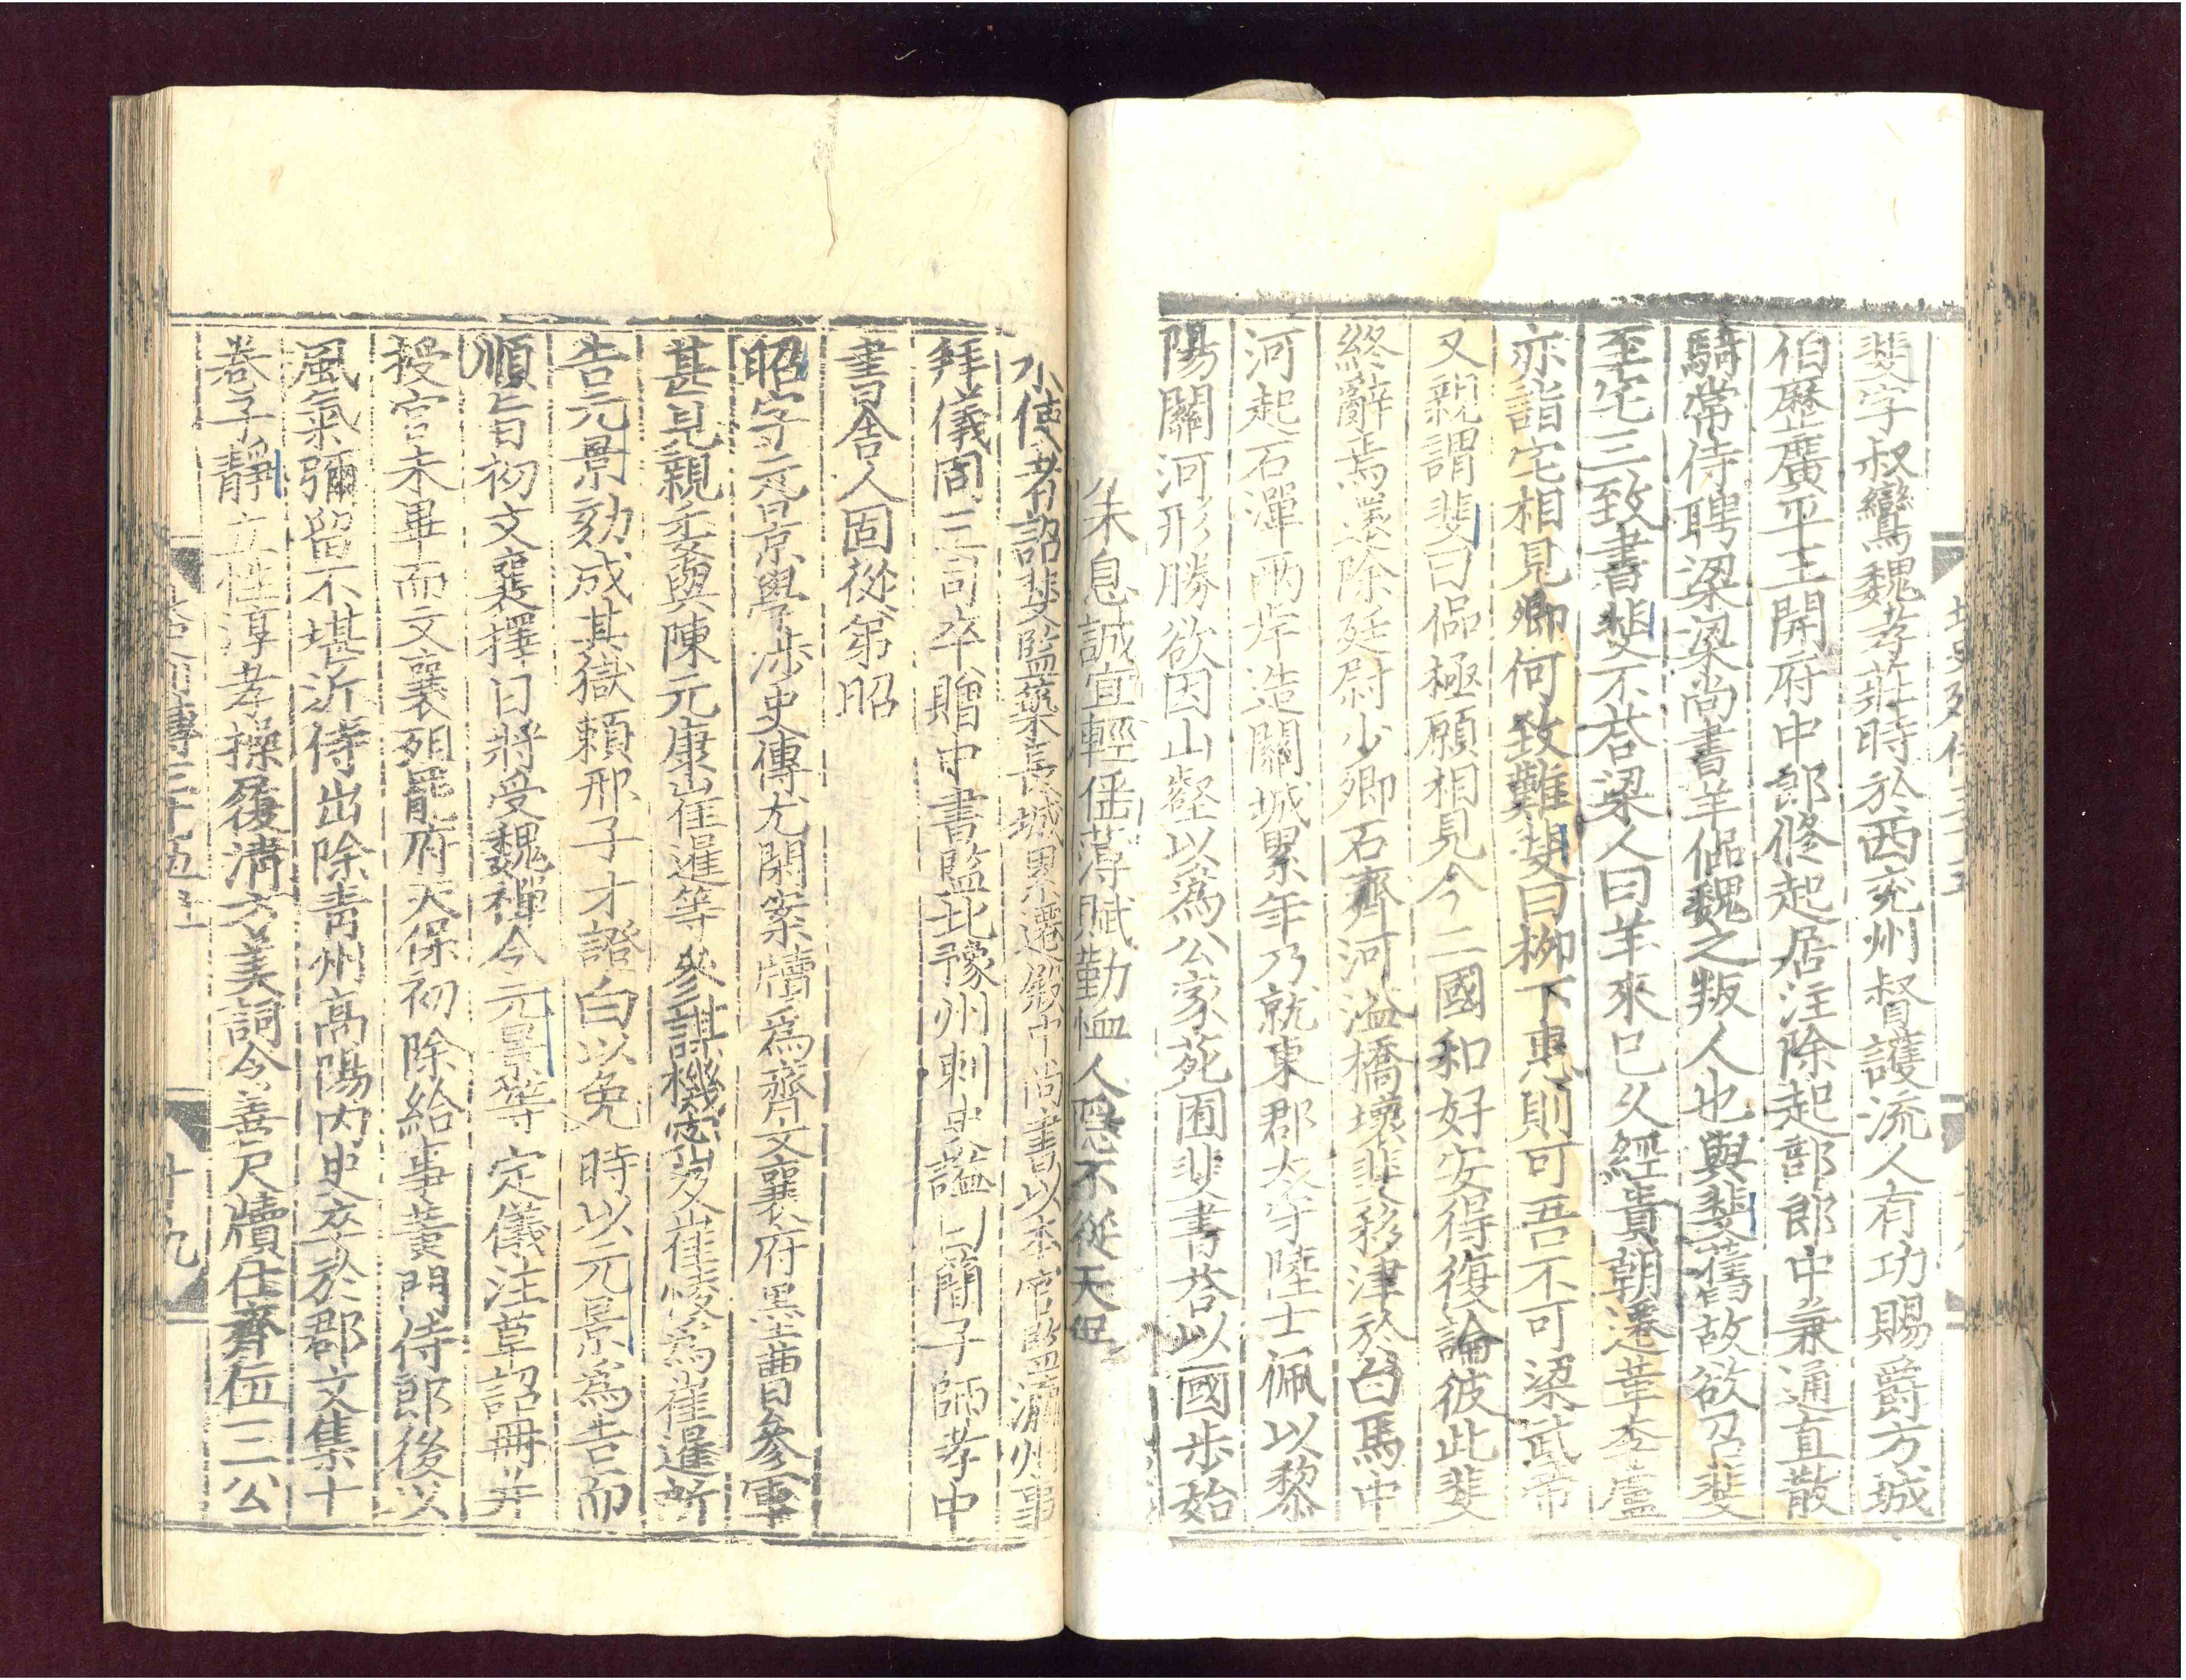 斐字叔鸞魏孝莊時於西兖州督護流人有功賜爵方城
伯歷廣平王開府中郎修起居注除起部郎中兼通直散
騎常侍聘梁梁尚書羊侃魏之叛人也與斐舊故欲召斐
至宅三致書斐不荅梁人曰羊來已久經貴朝遷革李盧
亦詣宅相見卿何致難斐曰柳下惠則可吾不可梁武帝
又親謂斐曰侃極願相見今二國和好安得復論彼此斐
終辭焉還除廷尉少卿石齊河溢橋壞斐移津於白馬中
河起石潬兩岸造關城累年乃就東郡太守陸士佩以黎
陽關河形勝欲因山壑以爲公家苑囿斐書荅以國步始
未息誠宜輕徭薄賦勤恤人隱不從天
水使者詔斐監築長城累遷殿中尚書以本官監瀛州事
拜儀同三司卒贈中書監北豫州刺史謚曰簡子師孝中
書舍人固從弟昭
昭字元景學涉史傳尤閑案牘爲齊文襄府墨曹參軍
甚見親委與陳元康崔暹等參謀機密及崔㥄爲崔暹所
告元景劾成其獄賴邢子才證白以免時以元景爲告而
順旨初文襄擇日將受魏禪令元景等定儀注草詔冊并
授官未畢而文襄殂罷府天保初除給事黄門侍郎後以
風氣彌留不堪近侍出除青州高陽内史卒於郡文集十
卷子靜立性淳孝操履清方美詞令善尺牘仕齊位三公
傳三十五
十九